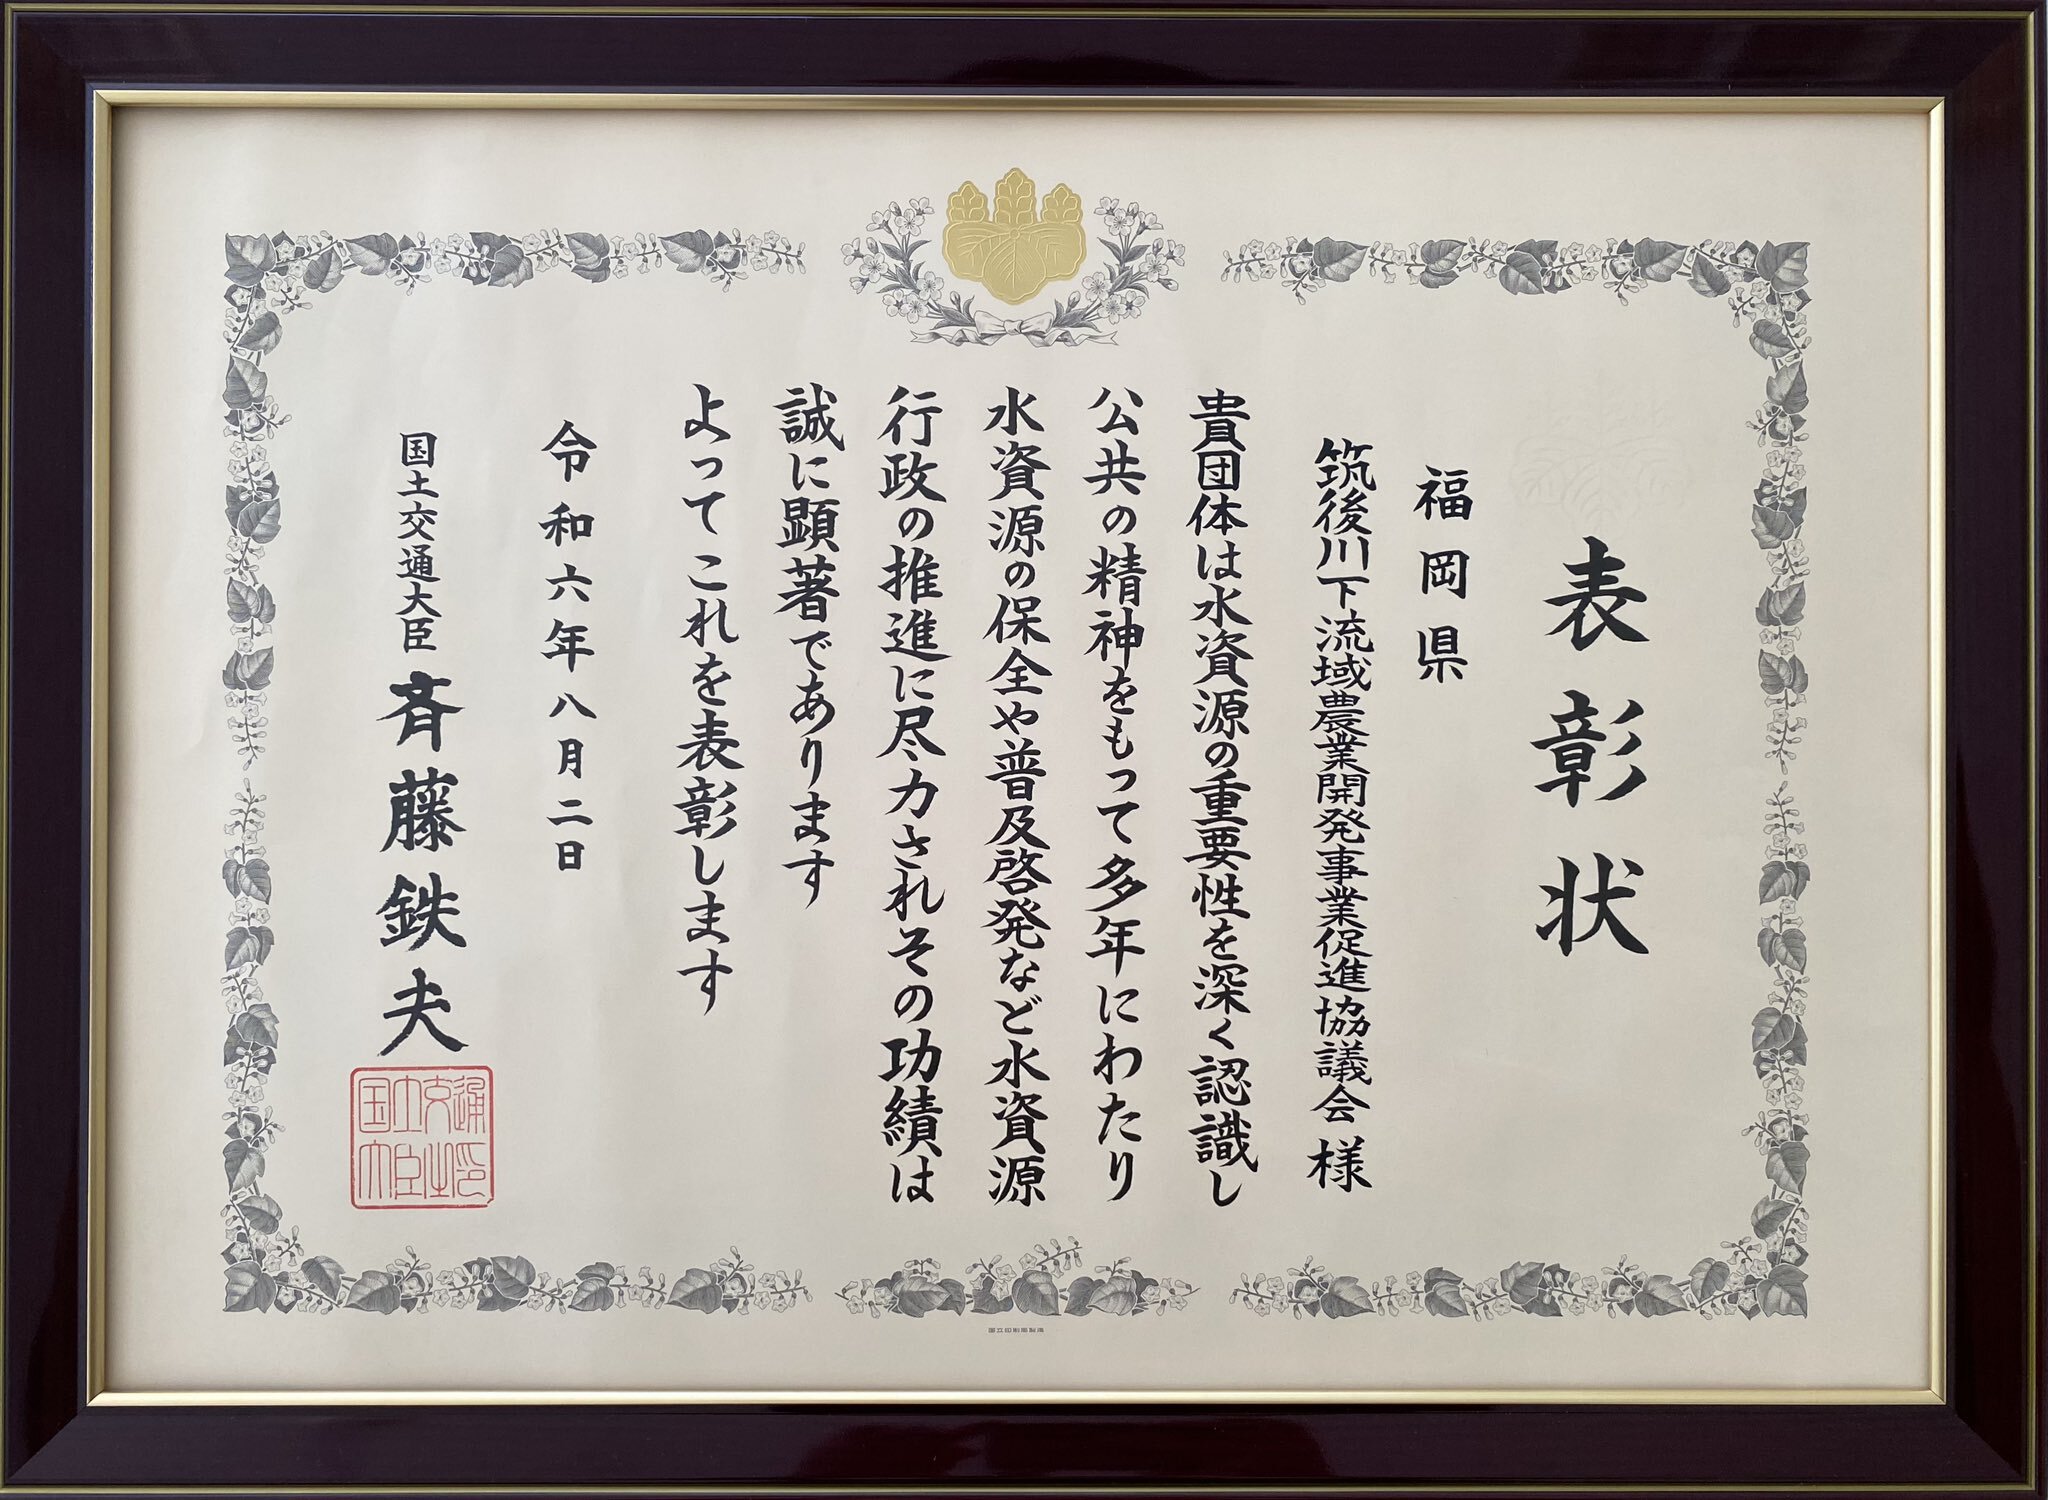 表彰状
福岡県
筑後川下流域農業開発事業促進協議会様
貴団体は水資源の重要性を深く認識し
公共の精神をもって多年にわたり
水資源の保全や普及啓発など水資源
行政の推進に尽力されその功績は
誠に顕著であります
よってこれを表彰します
令和六年八月二日
国土交通大臣 斉藤鉄夫
国土交通大臣之印
国立印刷局製造